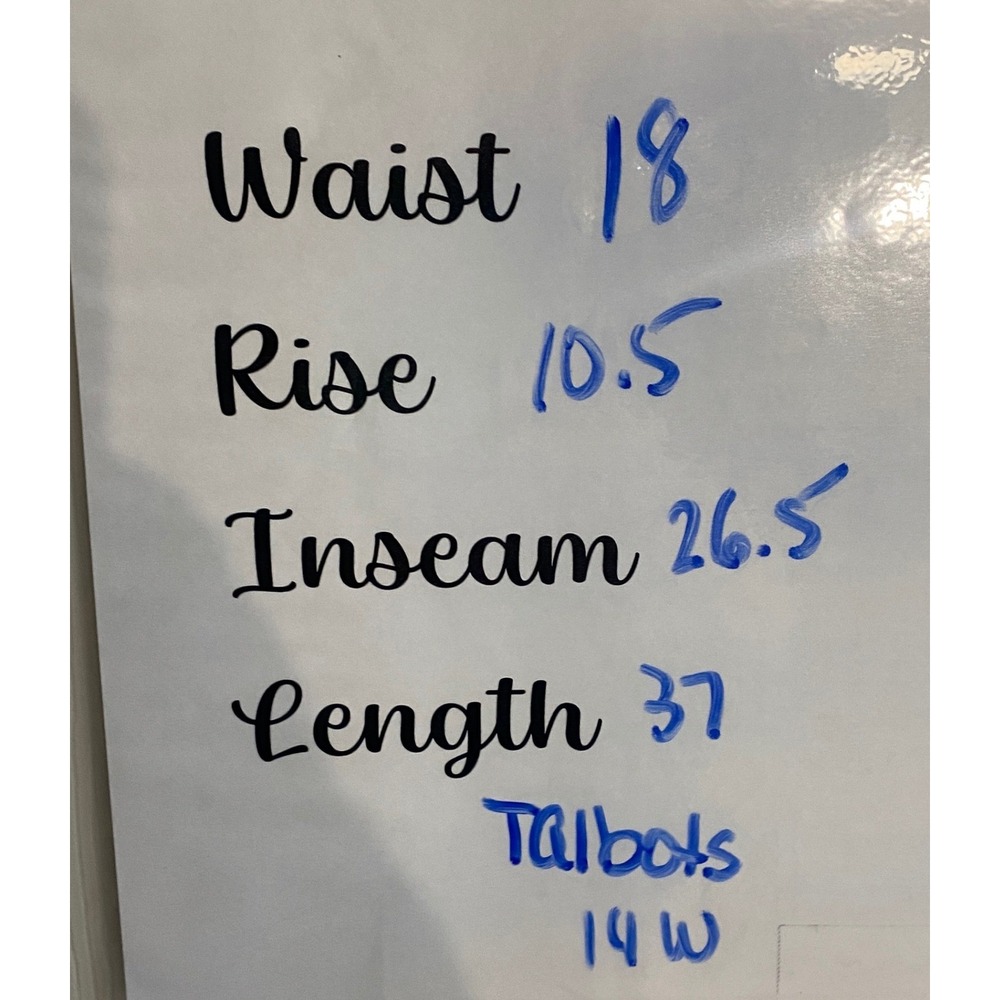 Waist 18
Rise 10.5
Inseam 26.5
Length 37
Talbots
14 W